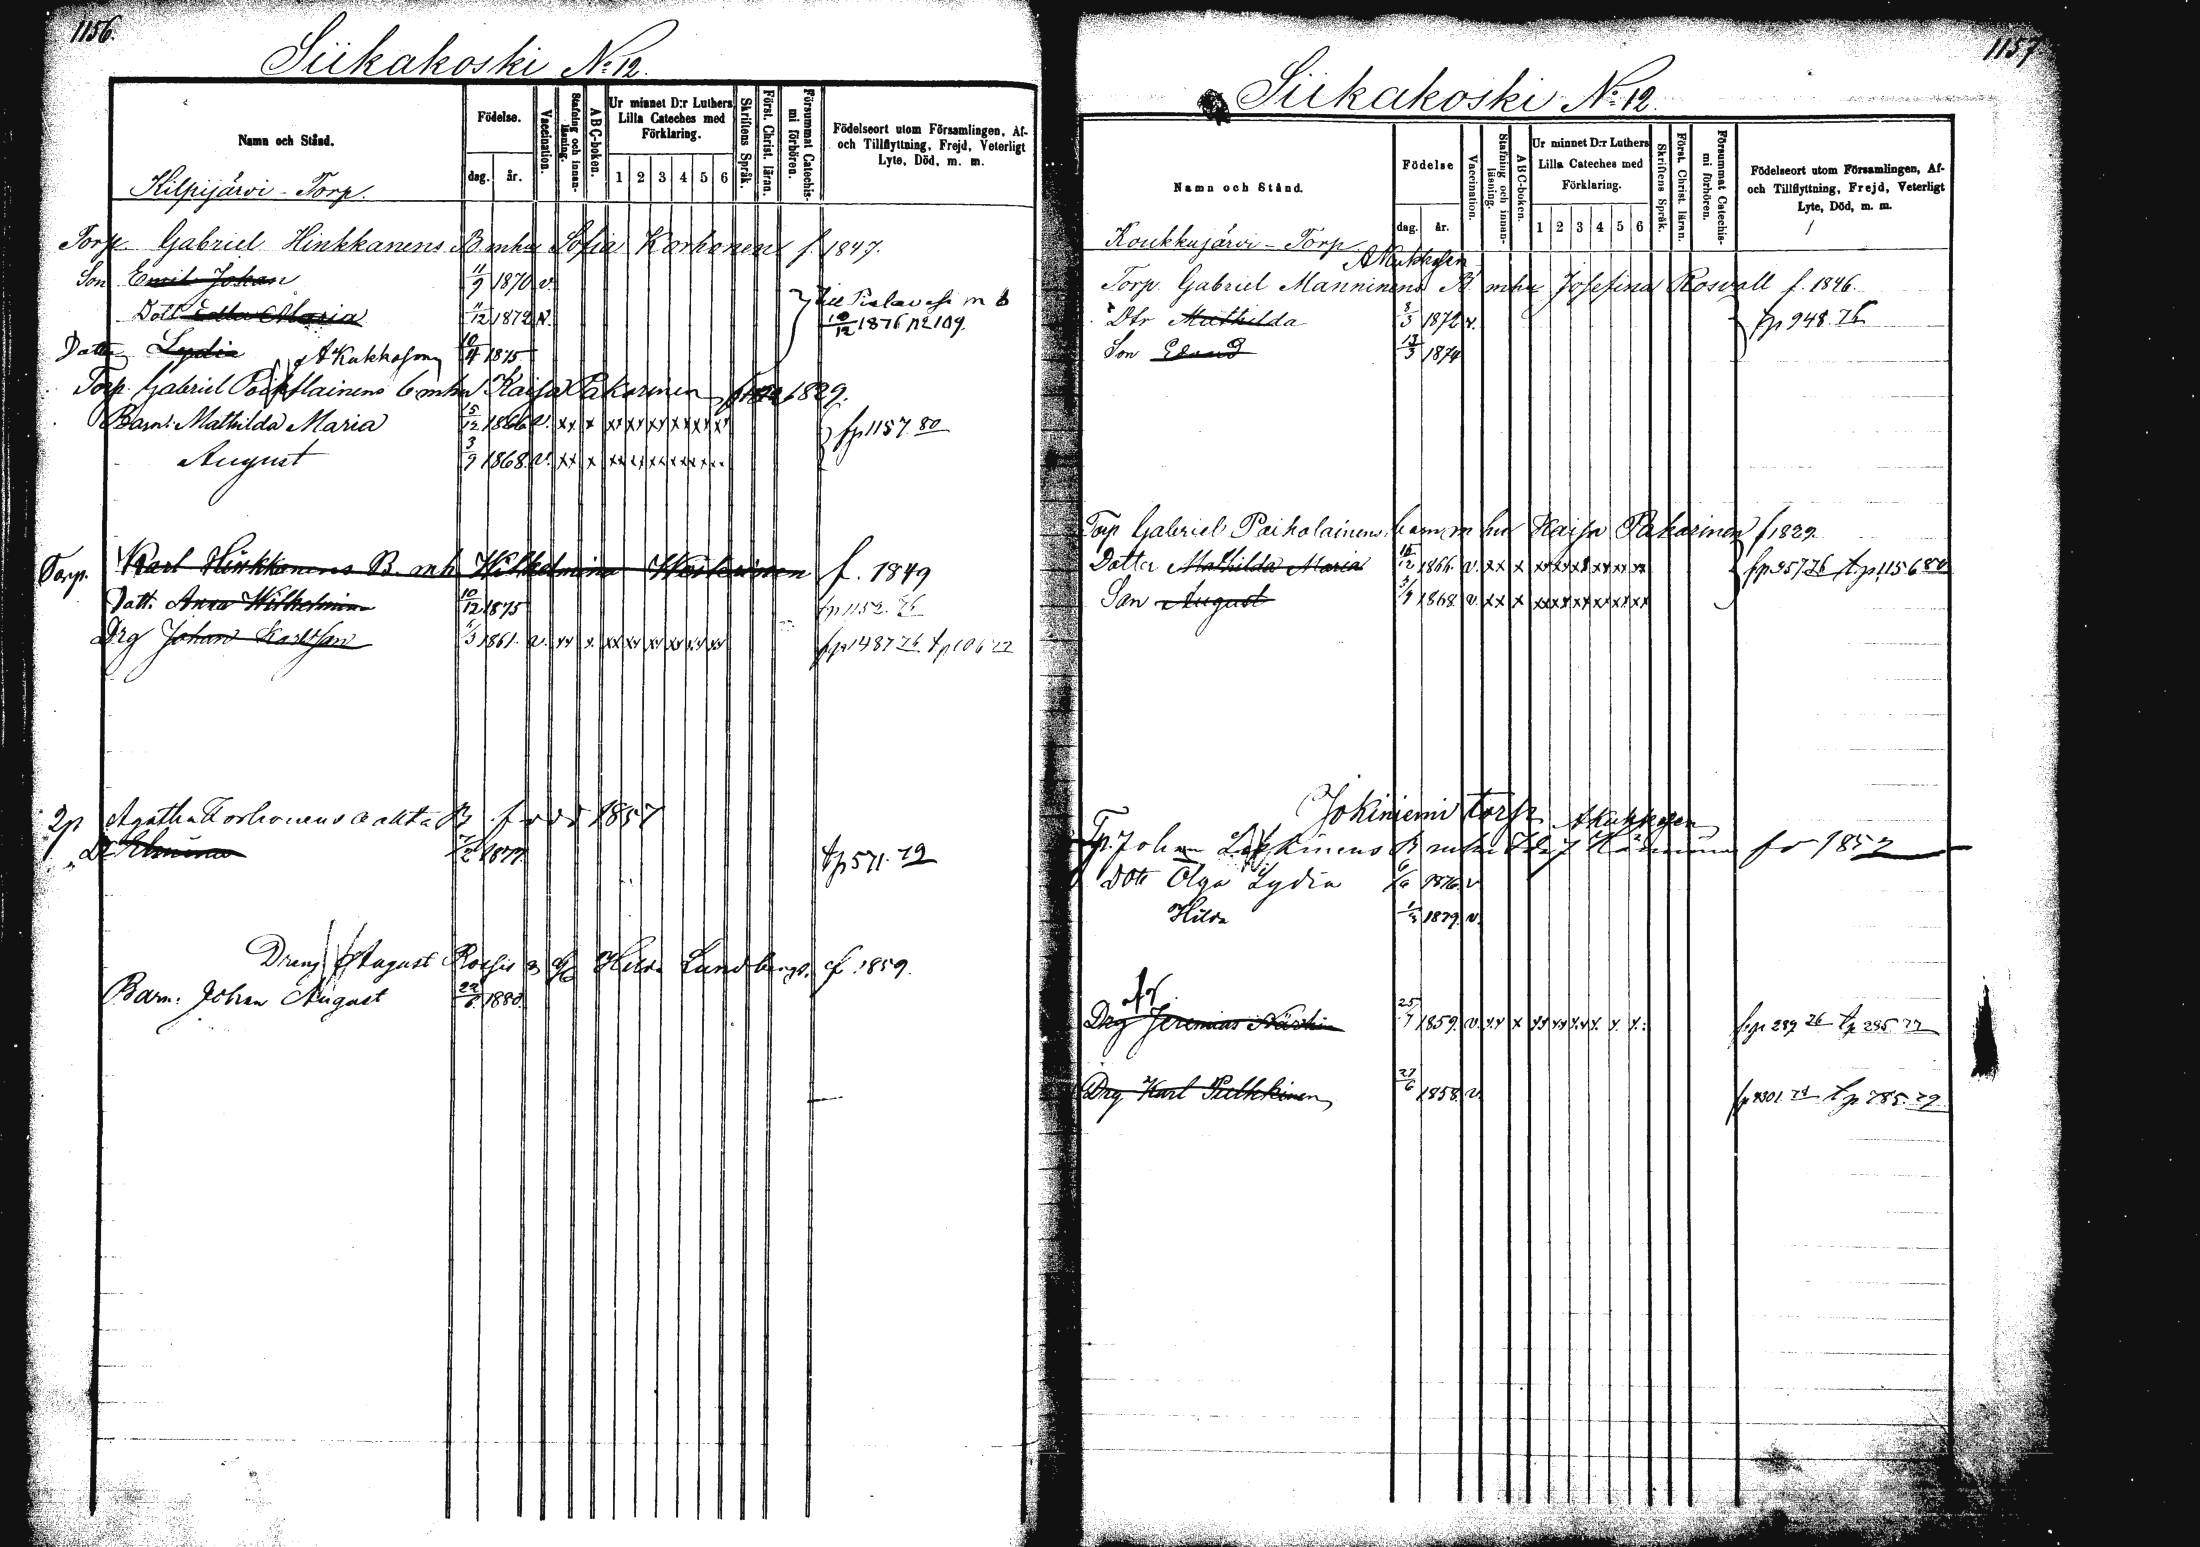 1156.
Siikakoski No 12.
Namn och Stånd.
Födelse.
dag.
år.
Vaccination.
Stafning och innan-läsning.
ABC-boken.
Ur minnet D:r Luthers Lilla Cateches med Förklaring.
1 2 3 4 5 6
Skriftens Språk.
Först. Christ. läran.
Försummat Catechis-mi förhören.
Födelseort utom Församlingen, Af- och Tillflyttning, Frejd, Veterligt Lyte, Död, m. m.
Kilpijärvi - Torp.
Torp. Gabriel Hinkkanens B mhu Sofia Korhonen f. 1847.
Son Emil Johan 11/9 1870 v.
Dott. Edla Maria 11/12 1872 v. 10/12 1876 No 109.
Dotter Lydia 1875
Torp. Gabriel b mhu Kaisa Pakarinen 1829.
Barn: Mathilda Maria 15/12 1866 v. xx x xx xx xx xx xx xx fp 1157 80
August 3/9 1868 v. xx x xx xx xx xx xx xx
Torp. Karl Hinkkanens B. mh Wilhelmina f. 1849
Dott. Anna Wilhelmina 10/12 1875 fp 1152. 76
Drg Johan Karlsson 1861. v. xx x xx xx xx xx xx xx fp 1487 76 tp 106 77
Agatha Korhonens oäkta B född 1857
1877. tp 571. 79
Dreng August Hilda Lundberg f. 1859.
Barn: Johan August 22/6 1880.
1157
Siikakoski No 12.
Namn och Stånd.
Födelse
dag.
år.
Vaccination.
Stafning och innan-läsning.
ABC-boken.
Ur minnet D:r Luthers Lilla Cateches med Förklaring.
1 2 3 4 5 6
Skriftens Språk.
Först. Christ. läran.
Försummat Catechis-mi förhören.
Födelseort utom Församlingen, Af- och Tillflyttning, Frejd, Veterligt Lyte, Död, m. m.
Koukkujärvi - Torp
Torp. Gabriel Manninens B mhu Josefina Rosvall f. 1846.
Dtr Mathilda 3/3 1872 v. fp 948. 76
Son Edvard 13/3 1874
Torp Gabriel Poikolainens barn m hu Kaisa Pakarinen f 1829
Dotter Mathilda Maria 15/12 1866. v. xx x xx xx xx xx xx xx fp 957 76 tp 1156 80
Son August 3/9 1868 v. xx x xx xx xx xx xx xx
Jokiniemi torp
Tp. Johan B mhu fö 1852
Dott Olga Lydia 1876. v
Hilda 1879. v.
Drg Jeremias 25/7 1859. v. xx x xx xx xx x x x fp 289 76 tp 295. 77
Drg Karl Pulkkinen 27/6 1858. v. tp 785. 79